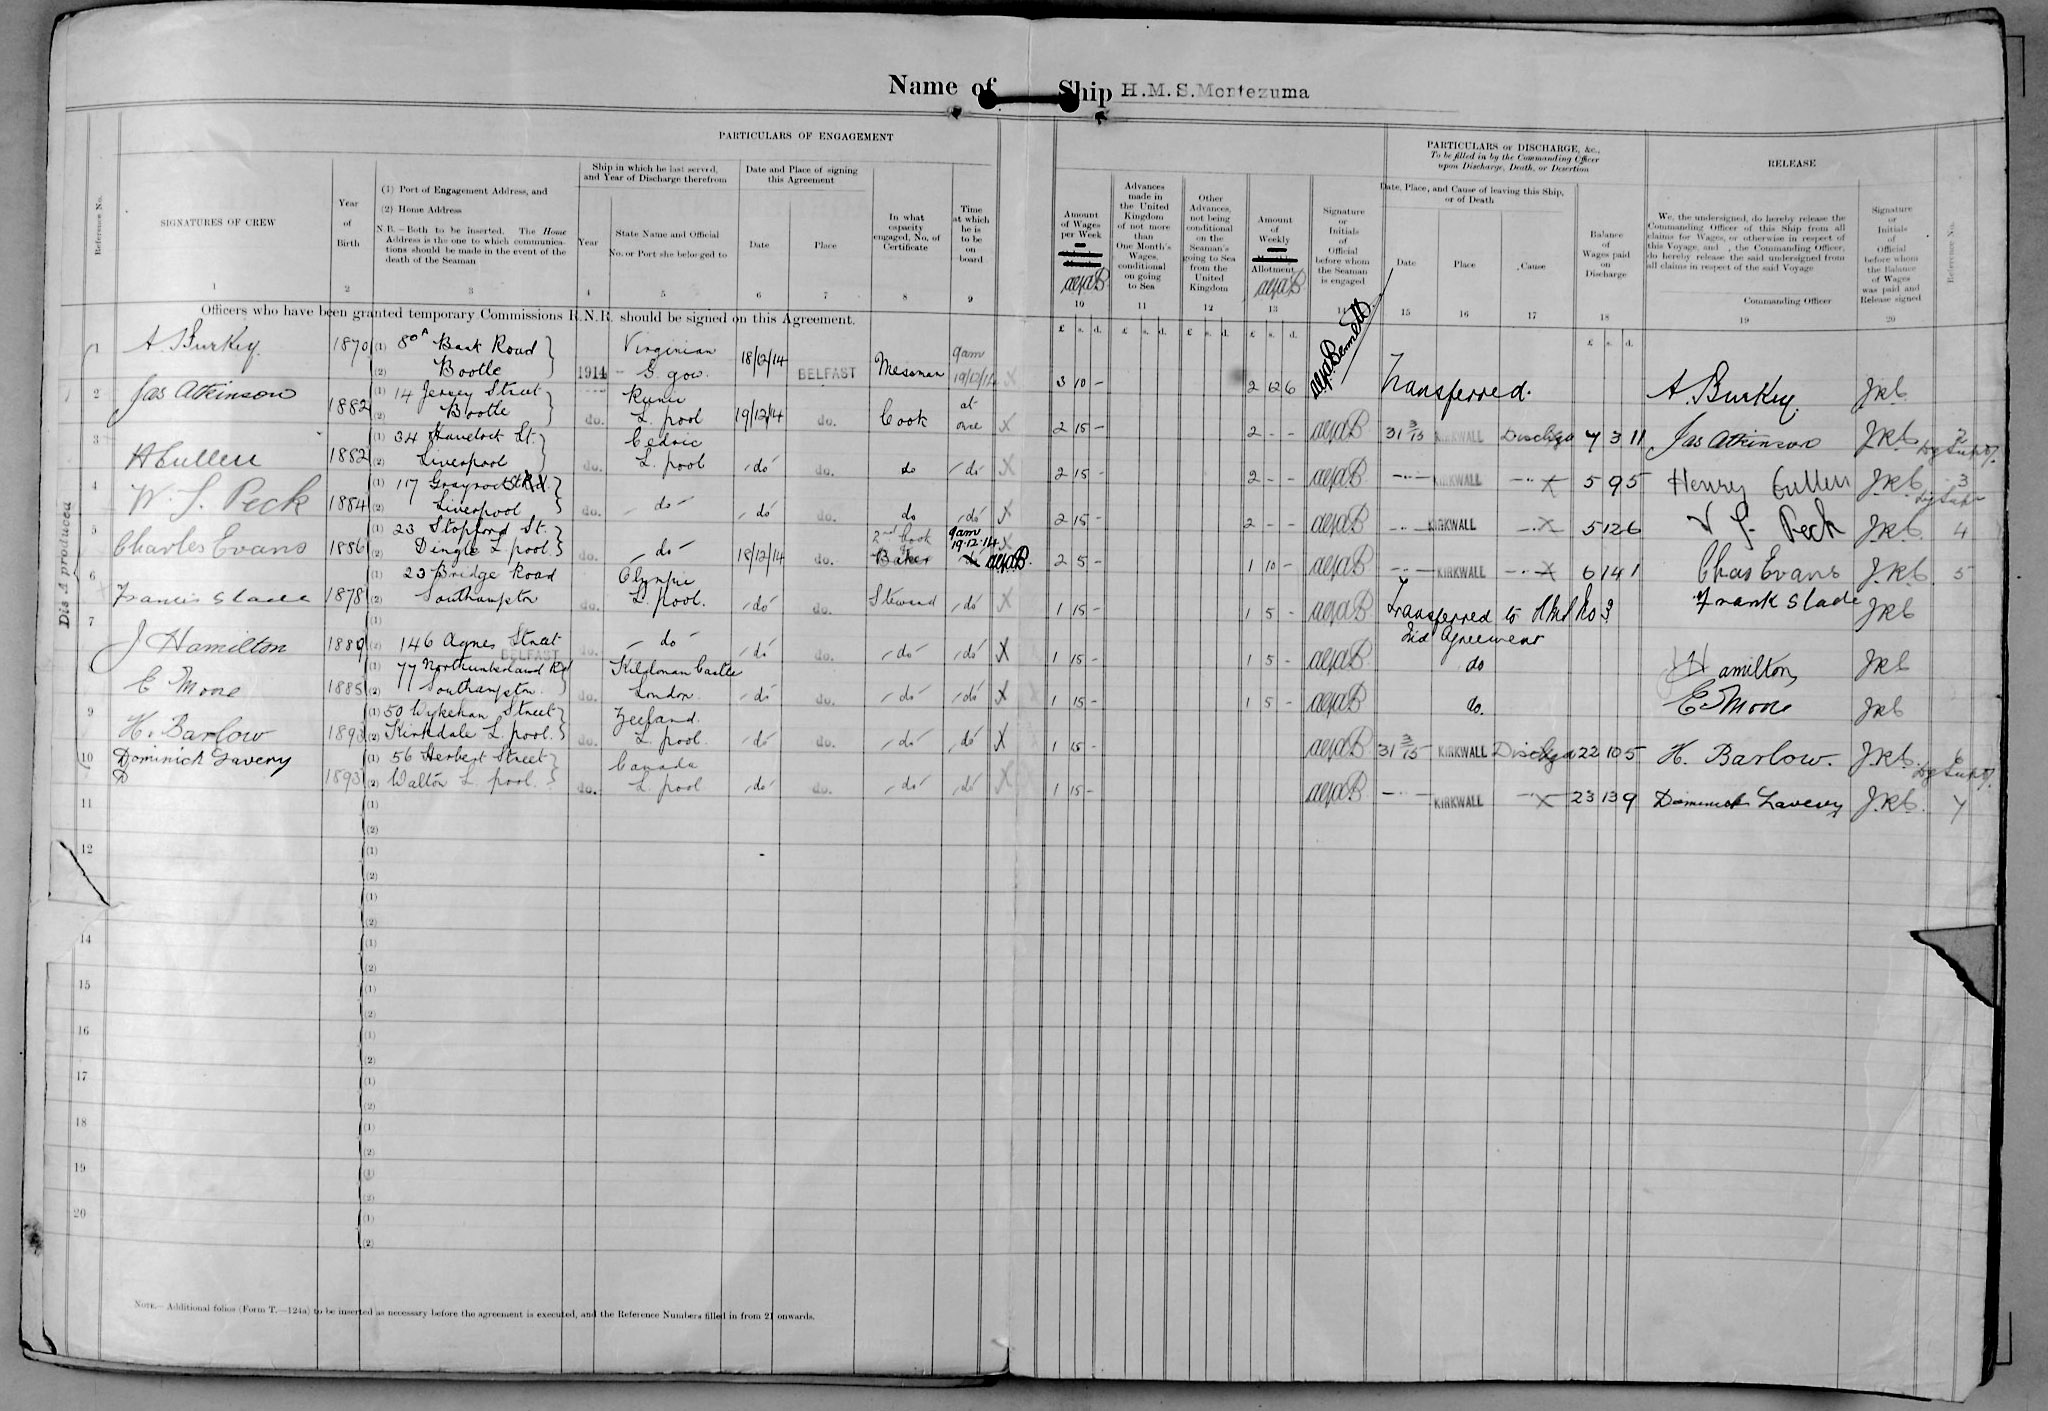 Name of Ship H.M.S.Montezuma
PARTICULARS OF ENGAGEMENT
PARTICULARS OF DISCHARGE, &c.,
To be filled in by the Commanding Officer
upon Discharge, Death, or Desertion
RELEASE
Reference No.
SIGNATURES OF CREW
1
Year
of
Birth
2
(1) Port of Engagement Address, and
(2) Home Address
N.B.—Both to be inserted. The Home
Address is the one to which communica-
tions should be made in the event of the
death of the Seaman
3
Ship in which he last served,
and Year of Discharge therefrom
Year
4
State Name and Official
No. or Port she belonged to
5
Date and Place of signing
this Agreement
Date
6
Place
7
In what
capacity
engaged, No. of
Certificate
8
Time
at which
he is
to be
on
board
9
Amount
of Wages
per Week
10
Advances
made in
the United
Kingdom
of not more
than
One Month's
Wages,
conditional
on going
to Sea
11
Other
Advances,
not being
conditional
on the
Seaman's
going to Sea
from the
United
Kingdom
12
Amount
of
Weekly
Allotment
13
Signature
or
Initials
of
Official
before whom
the Seaman
is engaged
14
Date, Place, and Cause of leaving this Ship,
or of Death
Date
15
Place
16
Cause
17
Balance
of
Wages paid
on
Discharge
18
We, the undersigned, do hereby release the
Commanding Officer of this Ship from all
claims for Wages, or otherwise in respect of
this Voyage, and , the Commanding Officer,
do hereby release the said undersigned from
all claims in respect of the said Voyage
Commanding Officer
19
Signature
or
Initials
of
Official
before whom
the Balance
of Wages
was paid and
Release signed
20
Reference No.
Officers who have been granted temporary Commissions R.N.R. should be signed on this Agreement.
£ s. d. £ s. d. £ s. d. £ s. d. £ s. d.
Dis A produced
1 A. Burkey. 1870 (1) 80A Bank Road (2) Bootle 1914 Virginian G. gow. 18/12/14 BELFAST Messman 9am 19/12/14 X 3 10 - 2 12 6 Bennett Transferred. A. Burkey. JRC
2 Jas Atkinson 1882 (1) 14 Jersey Street (2) Bootle do. Runic L. pool 19/12/14 do. Cook at once X 2 15 - 2 - - 31 3/15 KIRKWALL Dischge 7 3 11 Jas Atkinson JRC 2
3 H Cullen 1882 (1) 34 Havelock St. (2) Liverpool do. Cedric L. pool do do. do do X 2 15 - 2 - - KIRKWALL X 5 9 5 Henry Cullen JRC 3
4 W. S. Peck 1884 (1) 117 Grayrock (2) Liverpool do. do do do. do do X 2 15 - 2 - - KIRKWALL X 5 12 6 Peck JRC 4
5 Charles Evans 1886 (1) 23 Stopford St. (2) Dingle L. pool. do. do 18/12/14 do. 2nd Cook & Baker 9am 19.12.14 X 2 5 - 1 10 - KIRKWALL X 6 14 1 Chas Evans JRC 5
6 Francis Slade 1878 (1) 23 Bridge Road (2) Southampton do. Olympic L. pool. do do. Steward do X 1 15 - 1 5 - Transferred to No 3 Agreement Frank Slade JRC
7 J Hamilton 1889 (1) (2) 146 Agnes Street BELFAST do. do do do. do do X 1 15 - 1 5 - do Hamilton JRC
E Moore 1885 (1) 77 Northumberland Rd (2) Southampton. do. Kildonan Castle London. do do. do do X 1 15 - 1 5 - do. E. Moore JRC
9 H. Barlow 1893 (1) 50 Wykeham Street (2) Kirkdale L. pool. do. Zeeland. L. pool. do do. do do X 1 15 - 31 3/15 KIRKWALL Dischge 22 10 5 H. Barlow. JRC 6
10 Dominick Lavery 1893 (1) 56 Herbert Street (2) Walton L. pool. do. Canada L. pool do do. do do X 1 15 - KIRKWALL X 23 13 9 Dominick Lavery JRC 7
11 (1)
(2)
12 (1)
(2)
(1)
(2)
14 (1)
(2)
15 (1)
(2)
16 (1)
(2)
17 (1)
(2)
18 (1)
(2)
19 (1)
(2)
20 (1)
(2)
NOTE.—Additional folios (Form T.—124a) to be inserted as necessary before the agreement is executed, and the Reference Numbers filled in from 21 onwards.